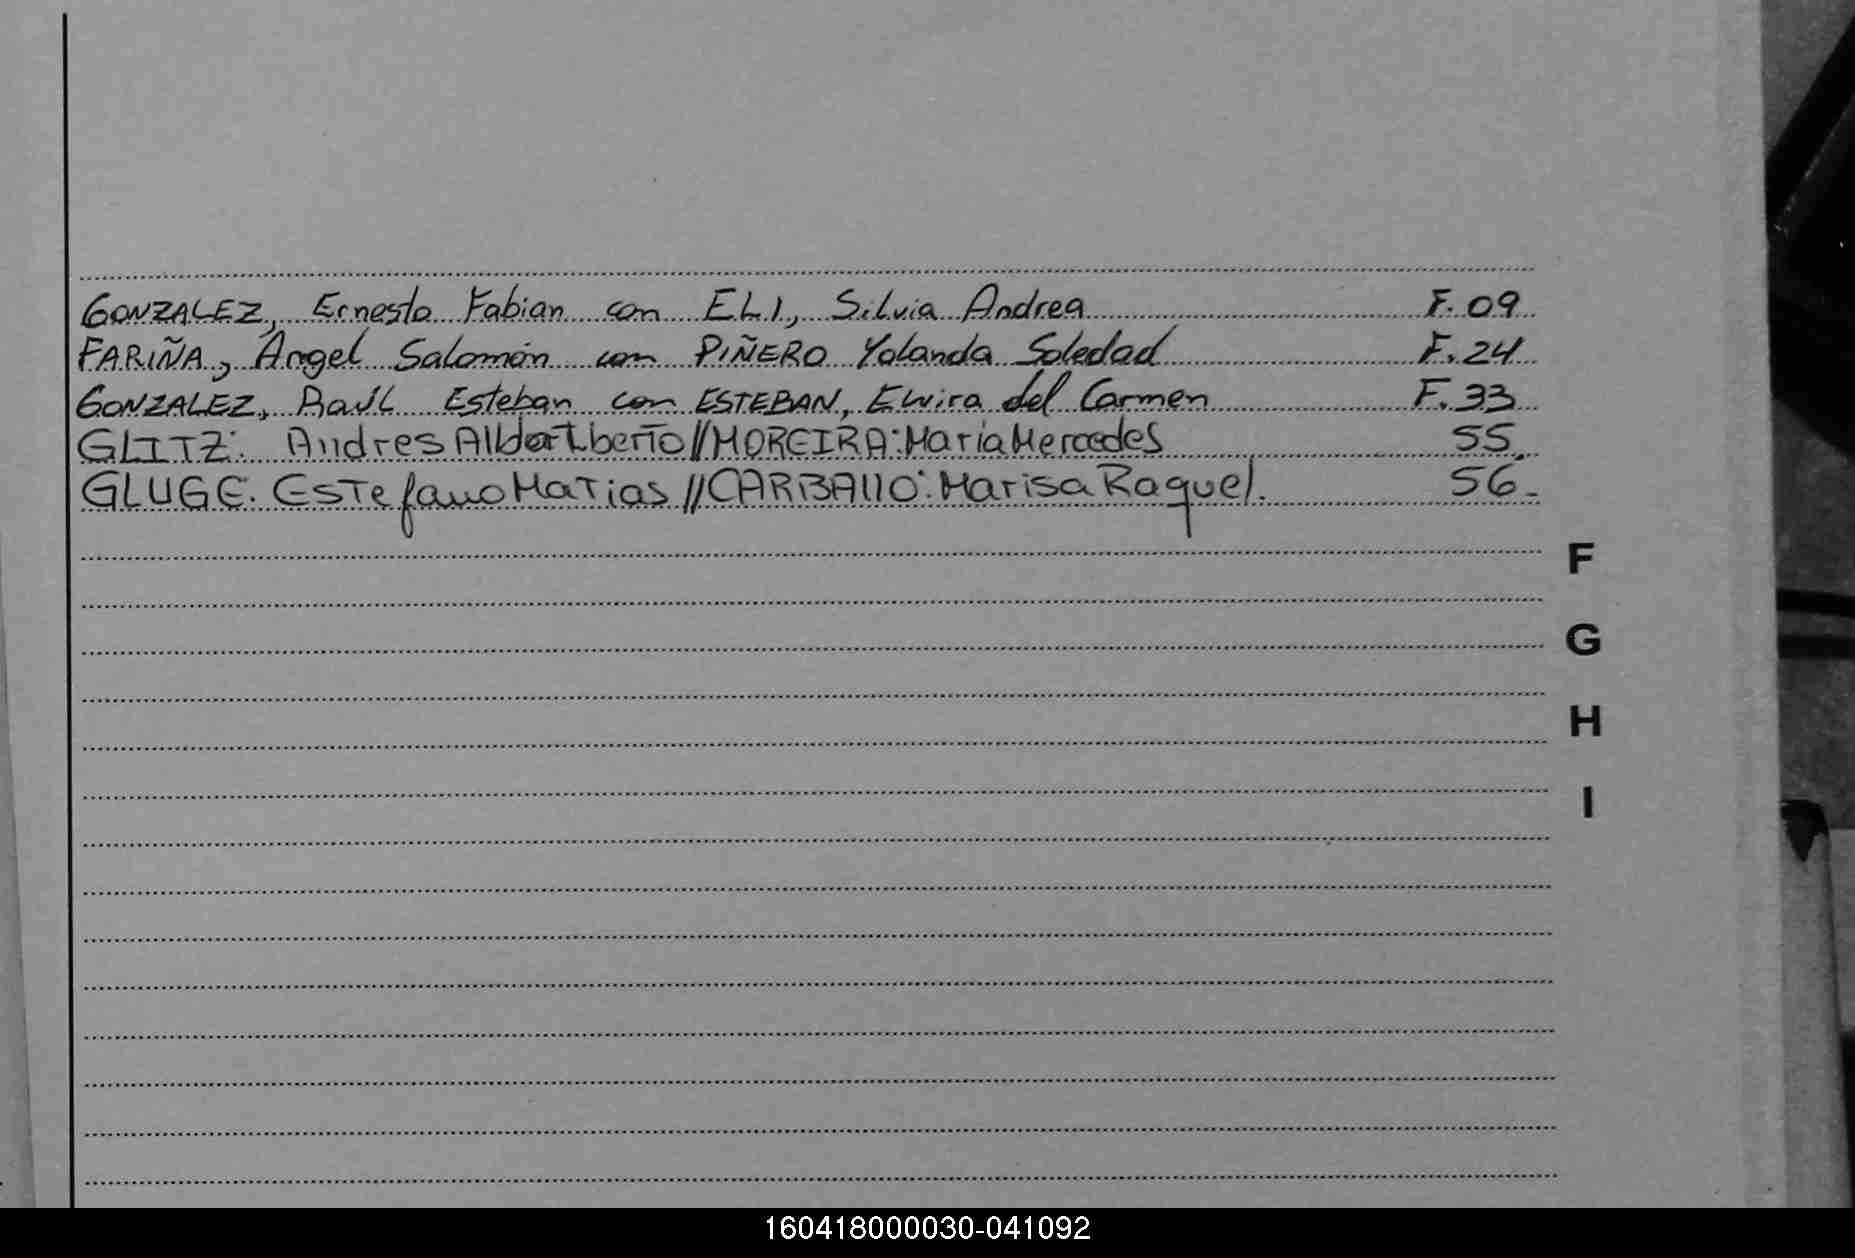 GONZALEZ, Ernesto Fabian con ELI, Silvia Andrea F. 09
FARIÑA, Angel Salomón con PIÑERO Yolanda Soledad F. 24
GONZALEZ, Raúl Esteban con ESTEBAN, Elvira del Carmen F. 33
GLITZ: Andres Alberto//MOREIRA: Maria Mercedes 55.
GLUGE. Estefano Matias //CARBALLO: Marisa Raquel. 56-
F
G
H
I
160418000030-041092